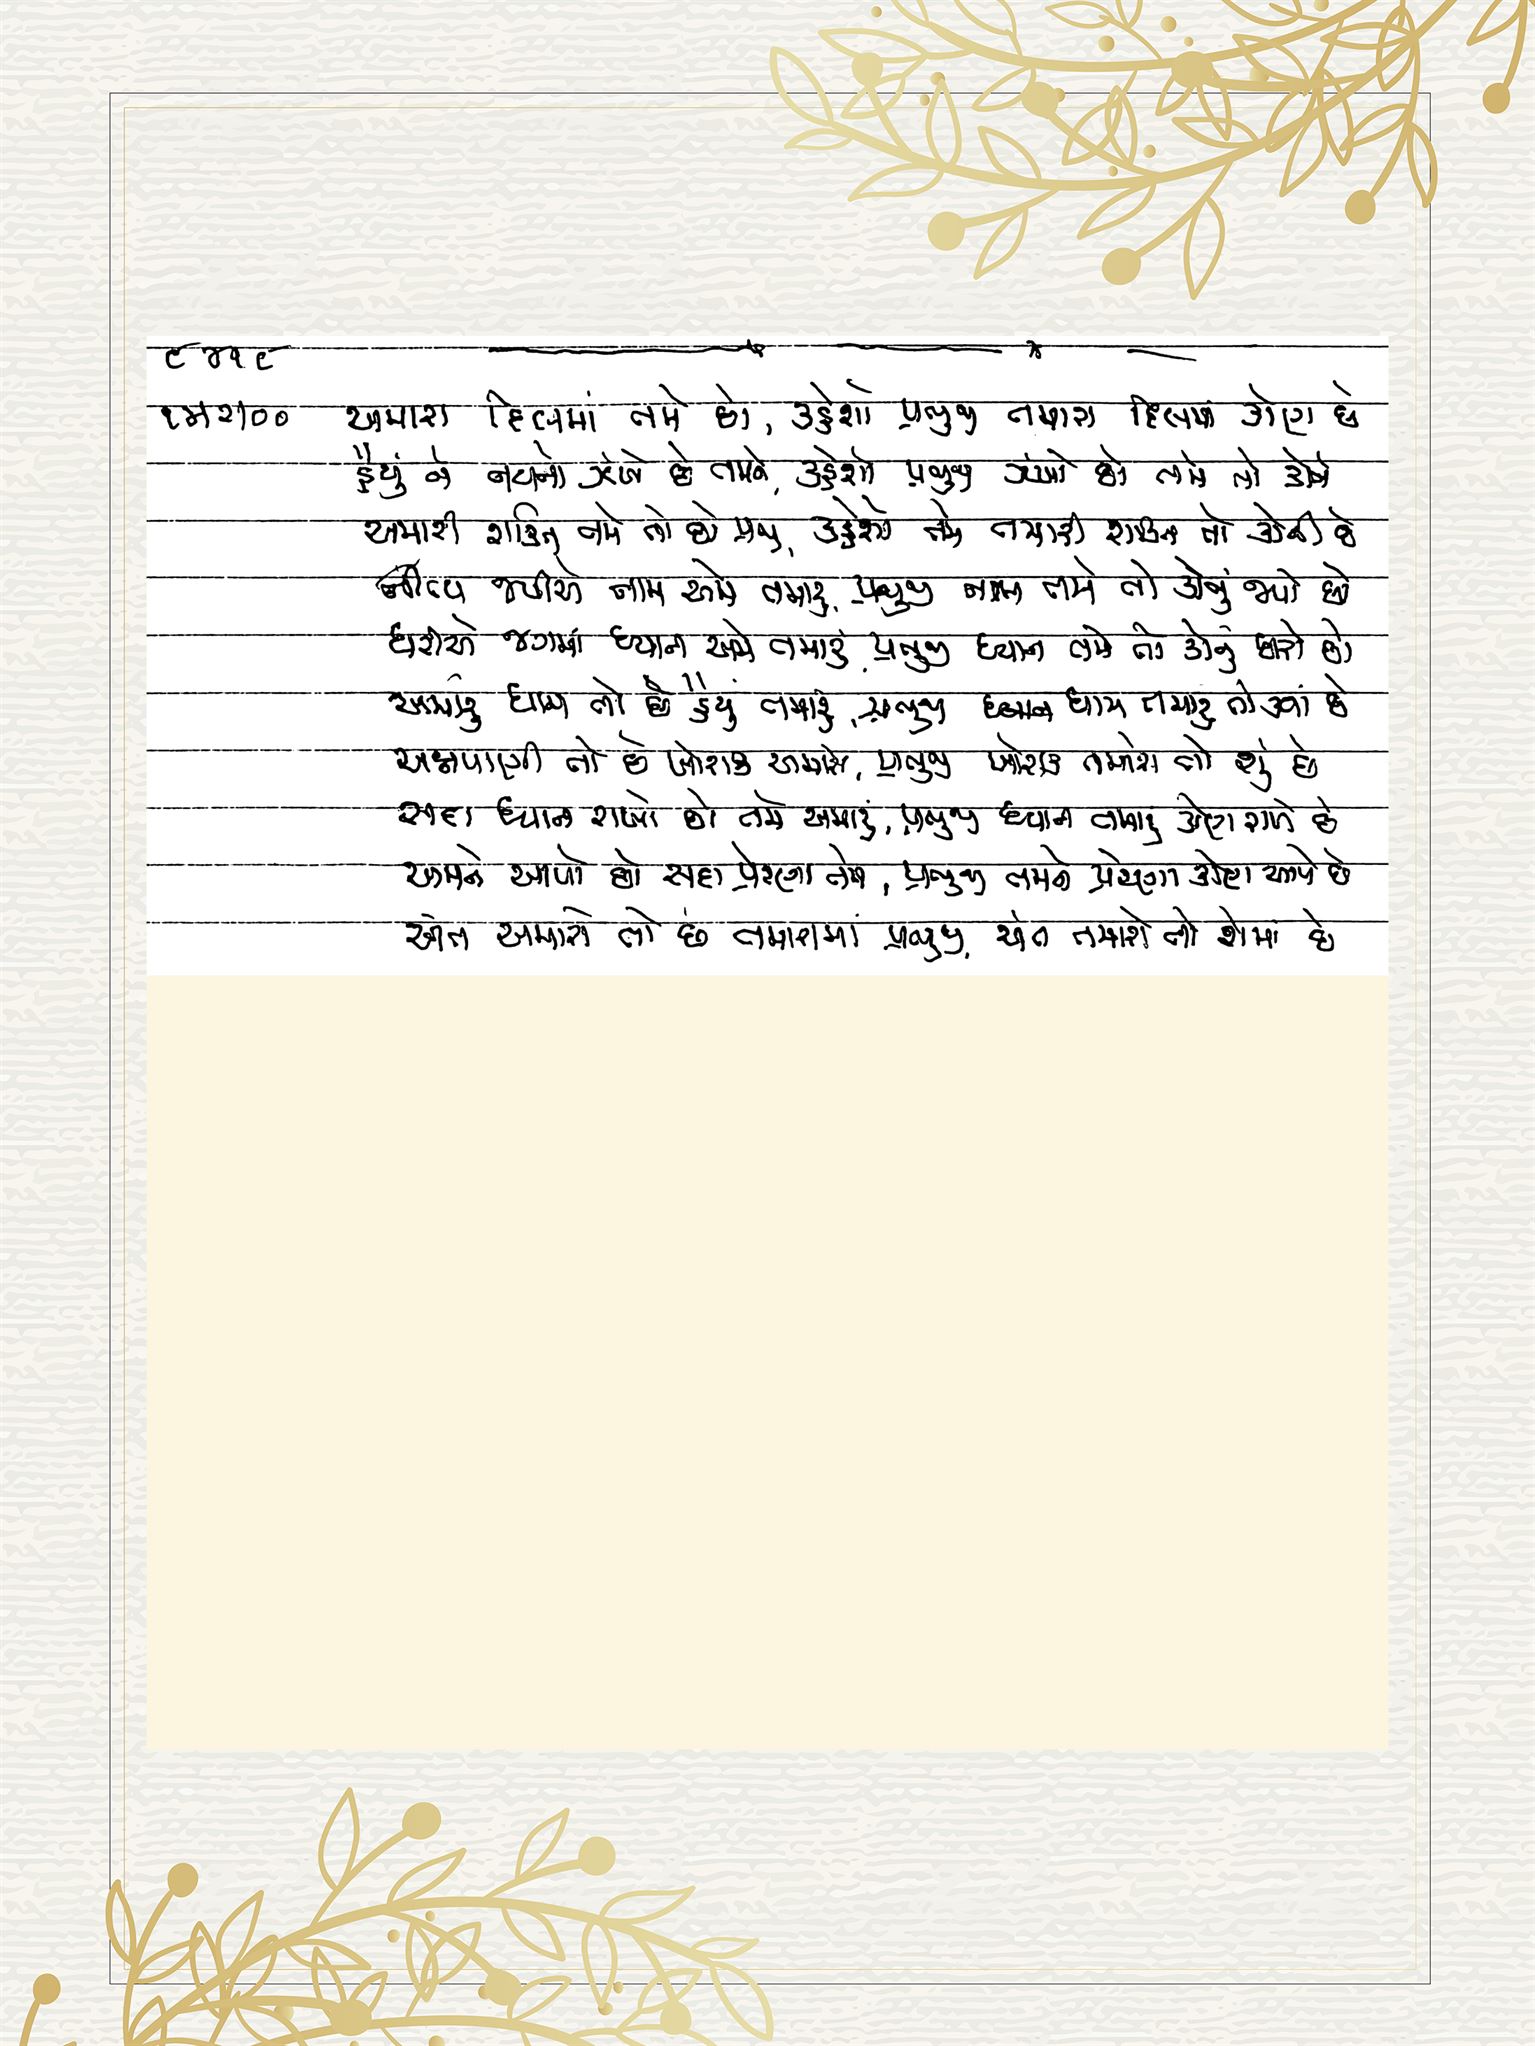 ૯૪૧૯
અમારા દિલમાં તમે છો, કહેશો પ્રભુજી તમારા દિલમાં કોણ છે
હૈયું ને નયનો ઝંખે છે તમને, કહેશો પ્રભુજી ઝંખો છો તમે તો કોને
અમારી શક્તિ તમે તો છો પ્રભુ, કહેશો તમે તમારી શક્તિ તો કોની છે
નીત્ય જપીએ નામ અમે તમારું, પ્રભુજી નામ તમે તો કોનું જપો છો
ધરીએ જગમાં ધ્યાન અમે તમારું, પ્રભુજી ધ્યાન તમે તો કોનું ધરો છો
અમારું ધામ તો છે હૈયું તમારું, પ્રભુજી ધામ તમારું તો ક્યાં છે
અન્નપાણી તો છે ખોરાક અમારો, પ્રભુજી ખોરાક તમારો તો શું છે
સદા ધ્યાન રાખો છો તમે અમારું, પ્રભુજી ધ્યાન તમારું કોણ રાખે છે
અમને આપો છો સદા પ્રેરણા તમે, પ્રભુજી તમને પ્રેરણા કોણ આપે છે
અંત અમારો તો છે તમારામાં પ્રભુજી, અંત તમારો તો શેમાં છે